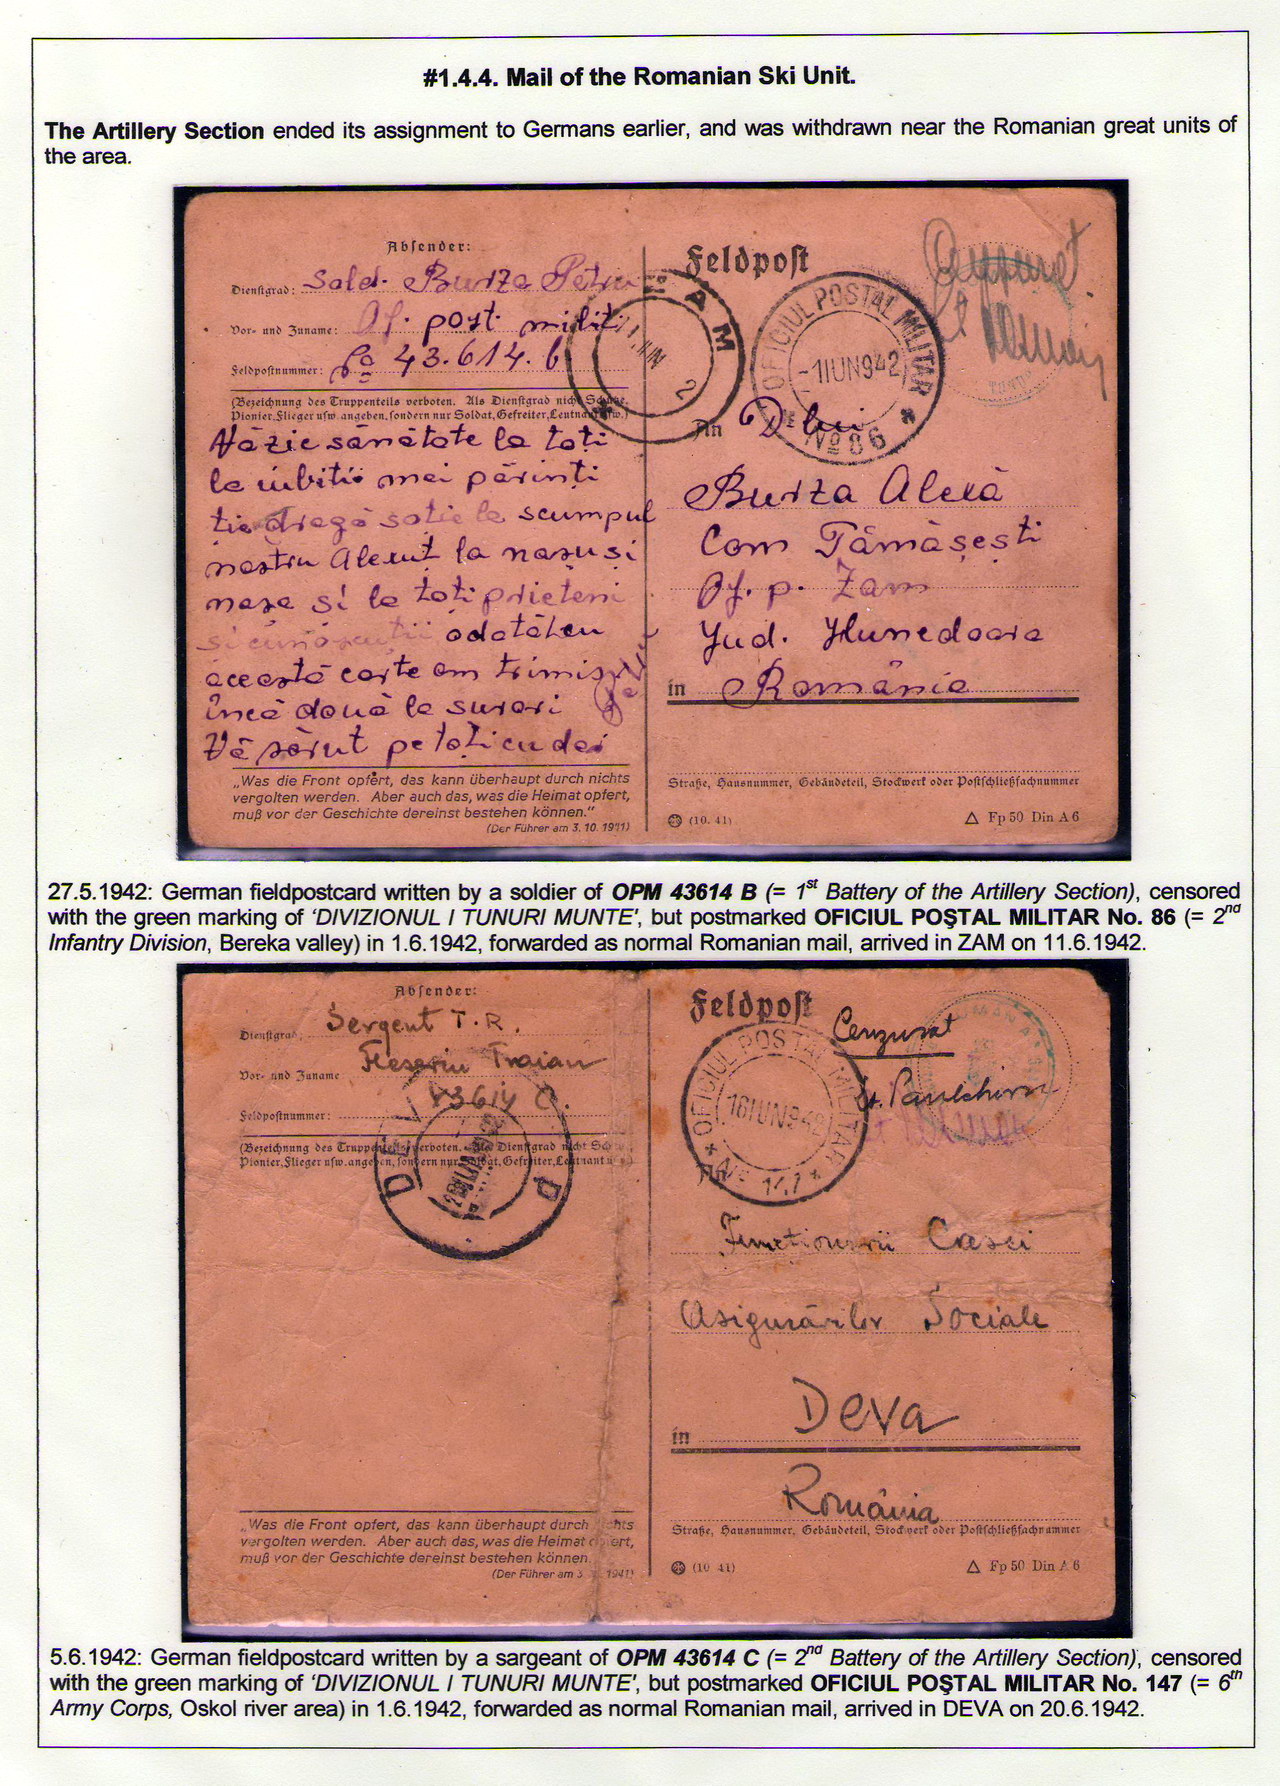 #1.4.4. Mail of the Romanian Ski Unit.
The Artillery Section ended its assignment to Germans earlier, and was withdrawn near the Romanian great units of
the area.
Absender:
Dienstgrad: Sold. Burza Petru
Vor- und Zuname: Of. post. milit
Feldpostnummer: 43.614.b
(Bezeichnung des Truppenteils verboten. Als Dienstgrad nicht Schütze,
Pionier, Flieger usw. angeben, sondern nur Soldat, Gefreiter, Leutnant usw.)
sănătate la toți
la iubitii mei părinți
ție dragă sotie la scumpul
nostru Alexuț la nașu și
nașa și la toti prieteni
odată cu
această carte am trimis
încă două la surori
Vă sărut pe toți cu dor
Petru
„Was die Front opfert, das kann überhaupt durch nichts
vergolten werden. Aber auch das, was die Heimat opfert,
muß vor der Geschichte dereinst bestehen können.“
(Der Führer am 3. 10. 1941)
ZAM
Feldpost
OFICIUL POSTAL MILITAR
-1IUN942
No 86
Cenzurat
An Dlui
Burza Alexă
Com Tămășești
Of. p. Zam
Jud. Hunedoara
in România
Straße, Hausnummer, Gebäudeteil, Stockwerk oder Postschließfachnummer
(10. 41)
Fp 50 Din A 6
27.5.1942: German fieldpostcard written by a soldier of OPM 43614 B (= 1st Battery of the Artillery Section), censored
with the green marking of ‘DIVIZIONUL I TUNURI MUNTE’, but postmarked OFICIUL POŞTAL MILITAR No. 86 (= 2nd
Infantry Division, Bereka valley) in 1.6.1942, forwarded as normal Romanian mail, arrived in ZAM on 11.6.1942.
Absender:
Dienstgrad: Sergent T.R.
Vor- und Zuname Traian
Feldpostnummer: 43614 C.
(Bezeichnung des Truppenteils verboten. Als Dienstgrad nicht
Pionier, Flieger usw. angeben, sondern nur Soldat, Gefreiter, Leutnant
„Was die Front opfert, das kann überhaupt durch nichts
vergolten werden. Aber auch das, was die Heimat opfert,
muß vor der Geschichte dereinst bestehen können.
(Der Führer am 3. 1941)
Feldpost
OFICIUL POSTAL MILITAR
16IUN942
No 147
Cenzurat
An
Functionarii Casei
Asigurărilor Sociale
in Deva
România
Straße, Hausnummer, Gebäudeteil, Stockwerk oder Postschließfachnummer
(10 41)
Fp 50 Din A 6
5.6.1942: German fieldpostcard written by a sargeant of OPM 43614 C (= 2nd Battery of the Artillery Section), censored
with the green marking of ‘DIVIZIONUL I TUNURI MUNTE’, but postmarked OFICIUL POŞTAL MILITAR No. 147 (= 6th
Army Corps, Oskol river area) in 1.6.1942, forwarded as normal Romanian mail, arrived in DEVA on 20.6.1942.